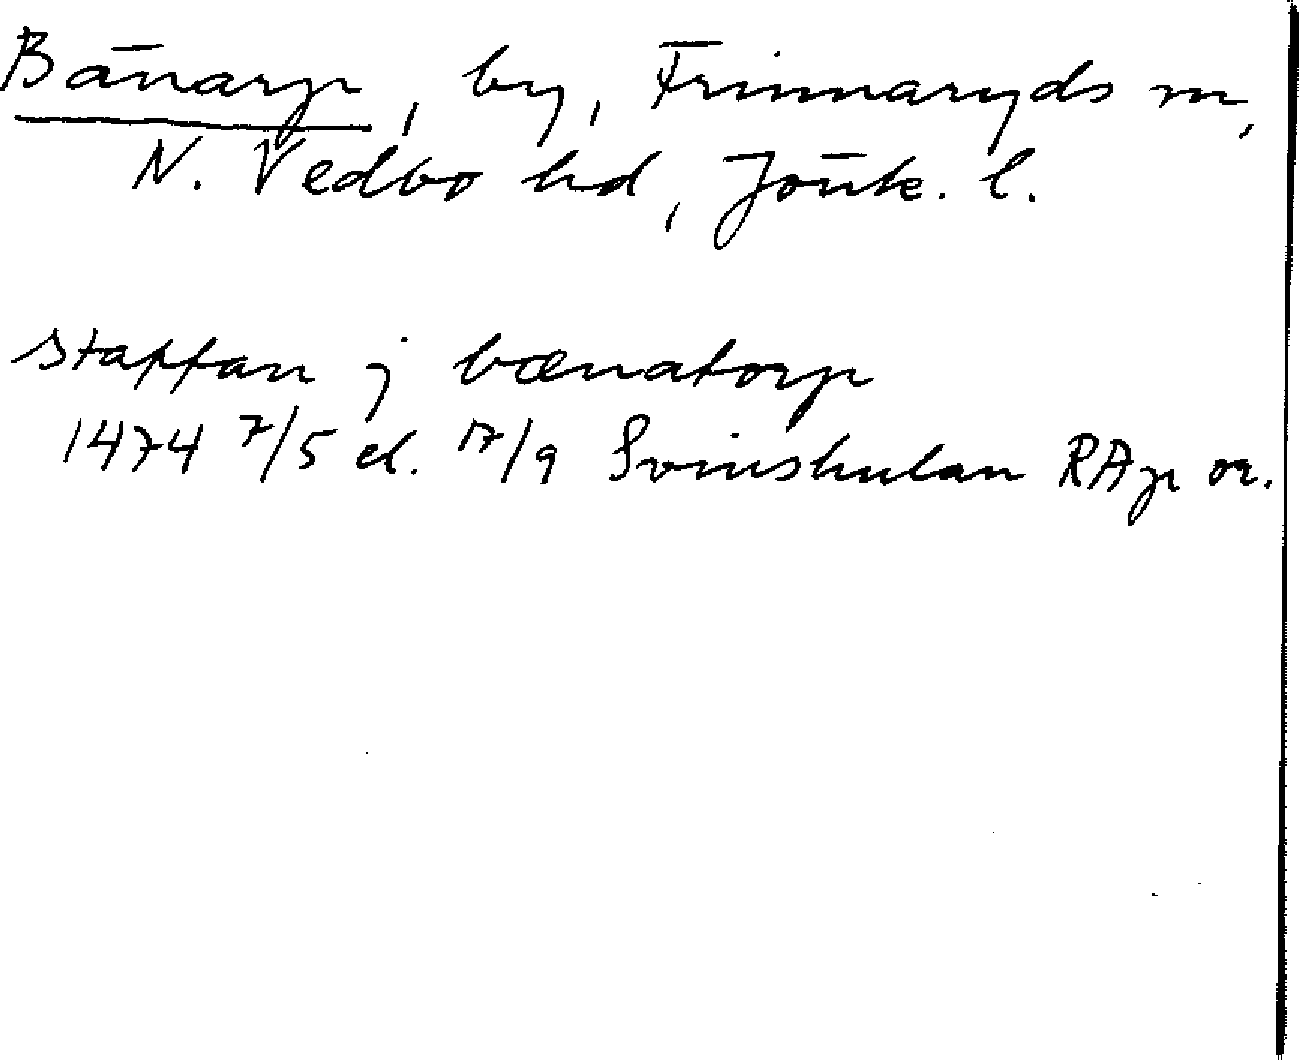 Bänarp, by, Frinnaryds sn,
N. Vedbo hd, Jönk. l.
staffan j bænatorp
1474 7/5 el. 17/9 Svinshulan RAp or.